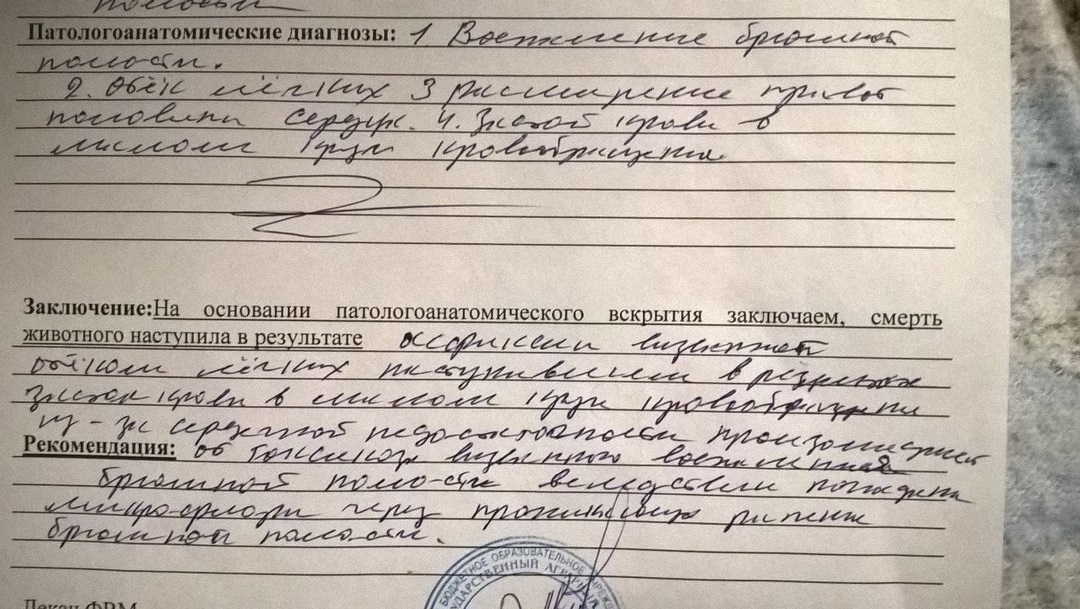 полости
Патологоанатомические диагнозы: 1 Воспаление брюшной
полости.
2. Отёк лёгких 3 расширение правой
половины сердца. 4. Застой крови в
малом круге кровообращения
Заключение:На основании патологоанатомического вскрытия заключаем, смерть
животного наступила в результате асфиксии вызванной
отёком лёгких наступившем в результате
застоя крови в малом круге кровообращения
из-за сердечной недостаточности произошедшей
Рекомендация: от токсикоза вызванного воспалением
брюшной полости вследствии попадания
микрофлоры через проникающие ранение
брюшной полости.
БЮДЖЕТНОЕ ОБРАЗОВАТЕЛЬНОЕ УЧРЕЖ
ГОСУДАРСТВЕННЫЙ АГРАРН
Декан ФВМ